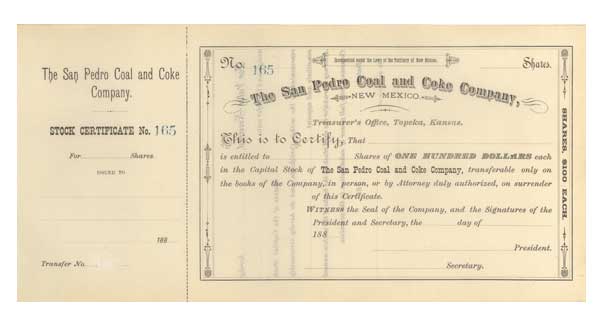 The San Pedro Coal and Coke
Company.
STOCK CERTIFICATE No. 165
For Shares
ISSUED TO
188
Transfer No.
Incorporated under the Laws of the Territory of New Mexico.
No. 165 Shares.
The San Pedro Coal and Coke Company,
NEW MEXICO.
Treasurer's Office, Topeka, Kansas.
This is to Certify, That
is entitled to Shares of ONE HUNDRED DOLLARS each
in the Capital Stock of The San Pedro Coal and Coke Company, transferable only on
the books of the Company, in person, or by Attorney duly authorized, on surrender
of this Certificate.
WITNESS the Seal of the Company, and the Signatures of the
President and Secretary, the day of
188
President.
Secretary.
SHARES, $100 EACH.